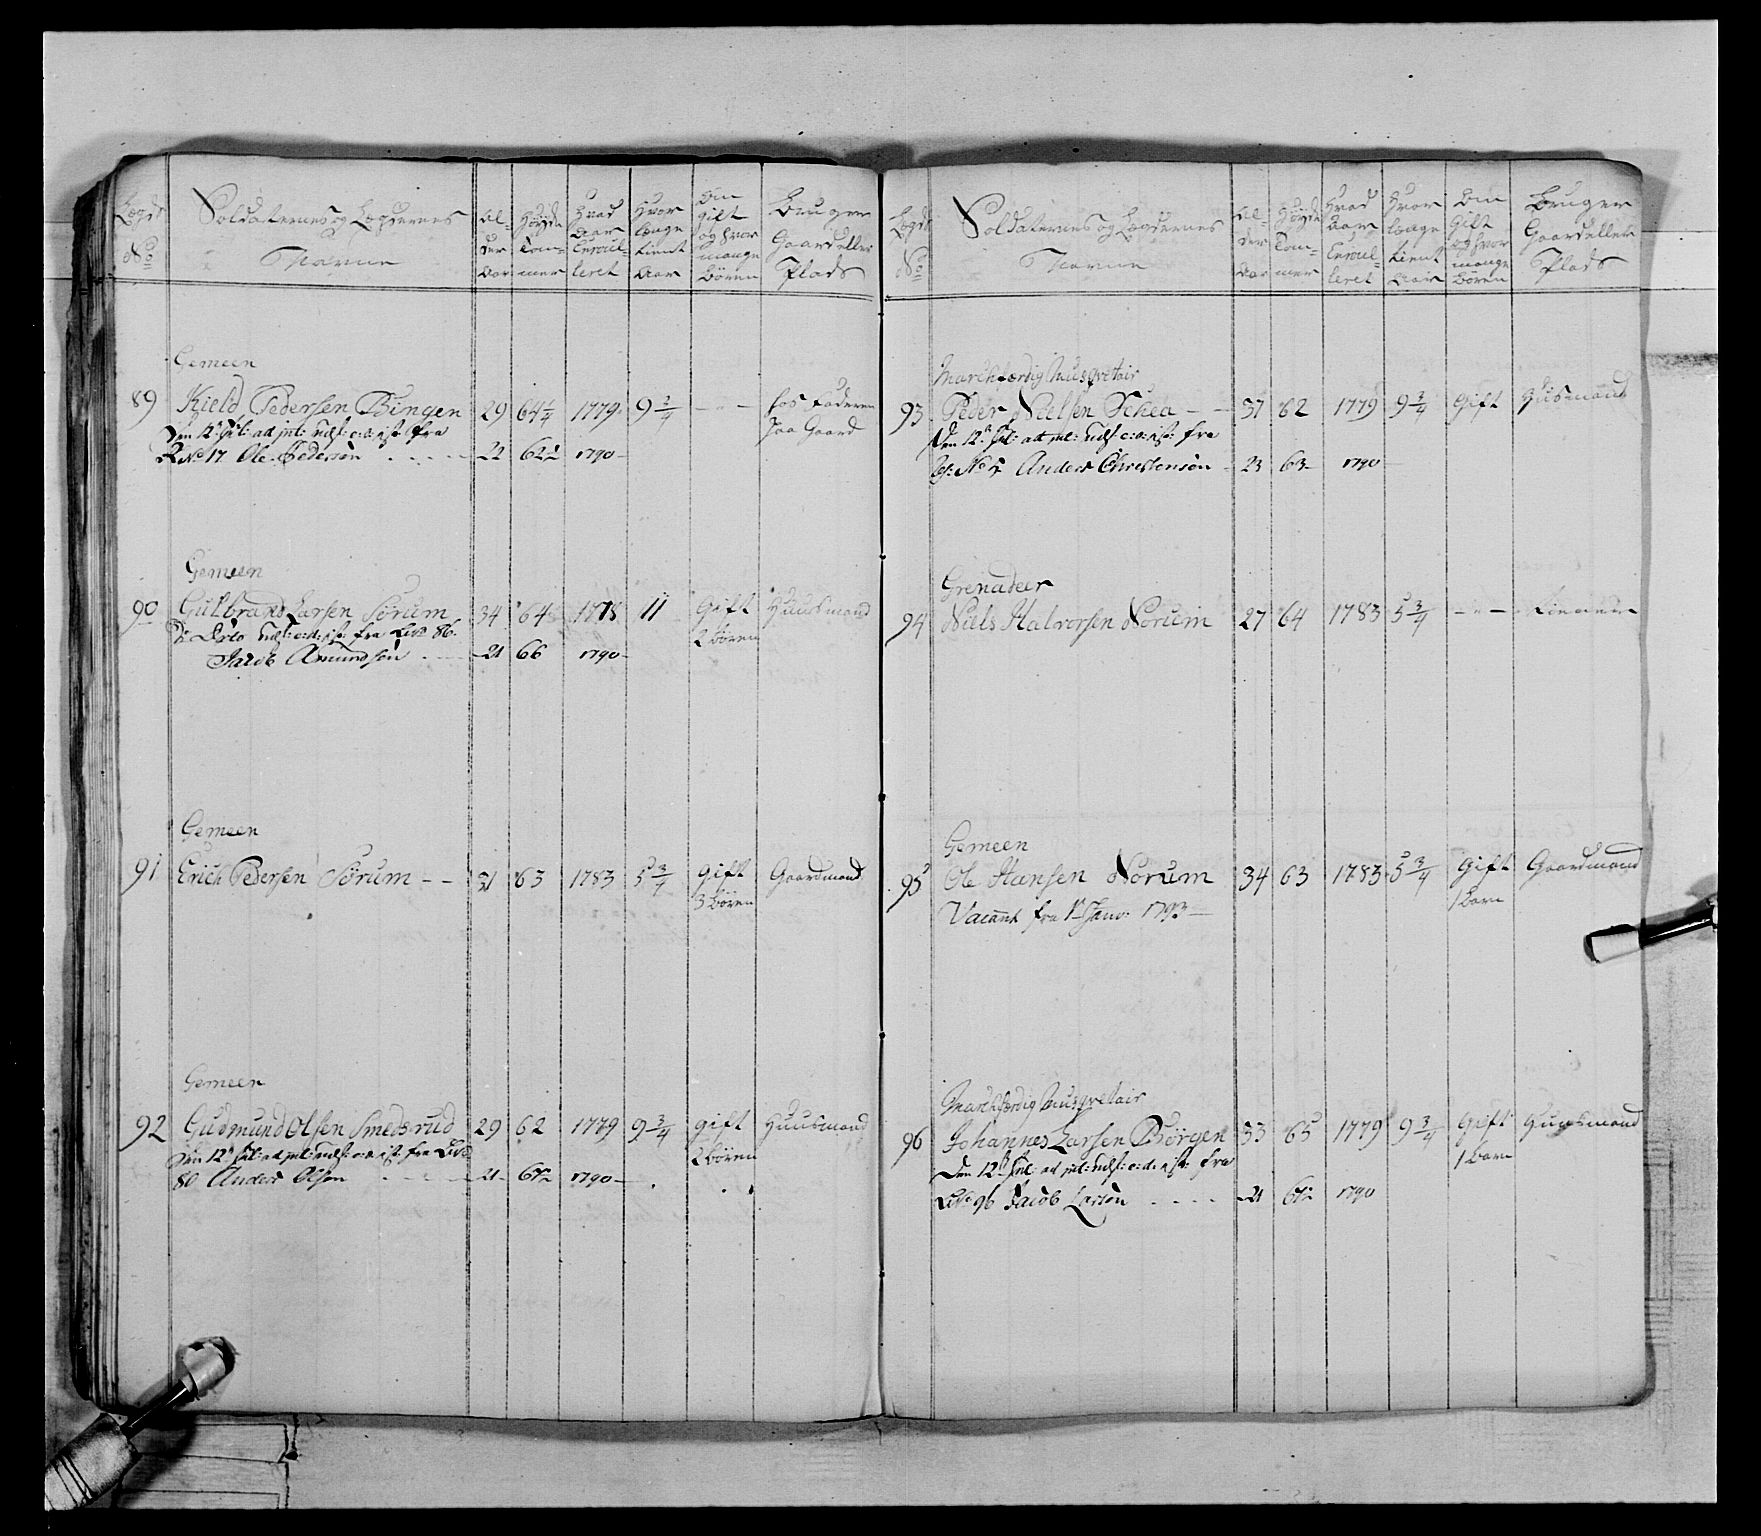 Lægds No
Soldaternes og Lægdernes Navne
Alder Aar
Høyde Tommer
Hvad Aar Enroulleret
Hvor længe tient Aar
Om gift og hvor mange børen
Bruger Gaard eller Plads
Gemeen
89 Kield Pedersen Bingen 29 64 1/4 1779 9 3/4 — — hos Faderen
paa Gaard
Den 12te Jul: ad int: udst: e: d: ist: fra
R No 17 Ole Pedersen 22 62 1/2 1790
Gemeen
90 Gulbrand Larsen Sørum 34 64 1778 11 Gift Huusmand
2 børen
D: Dito udst: e: d: ist: fra 86
Jacob Amundsen 21 66 1790
Gemeen
91 Erich Pedersen Sørum 31 63 1783 5 3/4 gift Gaardmand
3 børen
Gemeen
92 Gudmund Olsen Smedsrud 29 62 1779 9 3/4 gift Huusmand
2 børen
Den 12te Jul: ad int: udst: e: d: ist: fra
80 Anders Olsen 21 1790
Lægds No
Soldaternes og Lægdernes Navne
Alder Aar
Høyde Tommer
Hvad Aar Enroulleret
Hvor længe tient Aar
Om Gift og hvor mange børen
Bruger Gaard eller Plads
Marchfærdig Musqvetair
93 Peder Nielsen Schea 37 62 1779 9 3/4 Gift Huusmand
Den 12te Jul: ad int: udst: e: d: ist: fra
No 5 Anders Christensen 23 63 1790
Grenadeer
94 Niels Halvorsen Norum 27 64 1783 5 3/4 — — Tiener
Gemeen
95 Ole Hansen Norum 34 63 1783 5 3/4 Gift Gaardmand
1 barn
Vacant fra 1te Janv: 1793
Marchfærdig Musqvetair
96 Johannes Larsen Børgen 33 65 1779 9 3/4 Gift Huusmand
1 barn
Den 12te Jul: ad int: udst: e: d: ist: fra
96 Jacob Larsen 21 1790